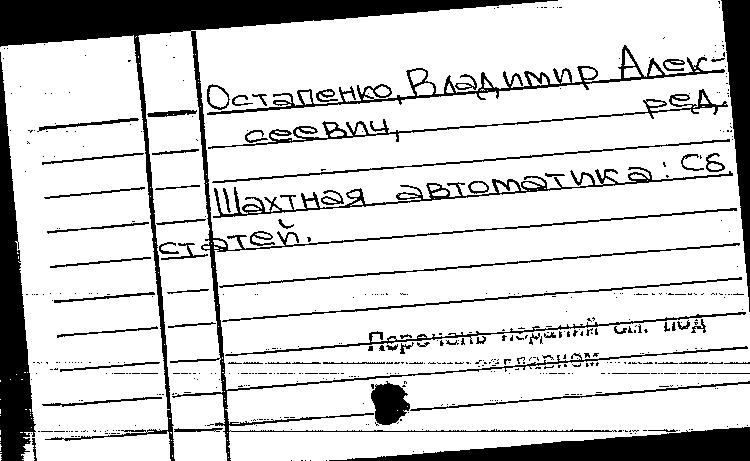 Остапенко, Владимир Алек-
сеевич, ред.
Шахтная автоматика: Сб.
статей.
Перечень изданий см. под
заглавием